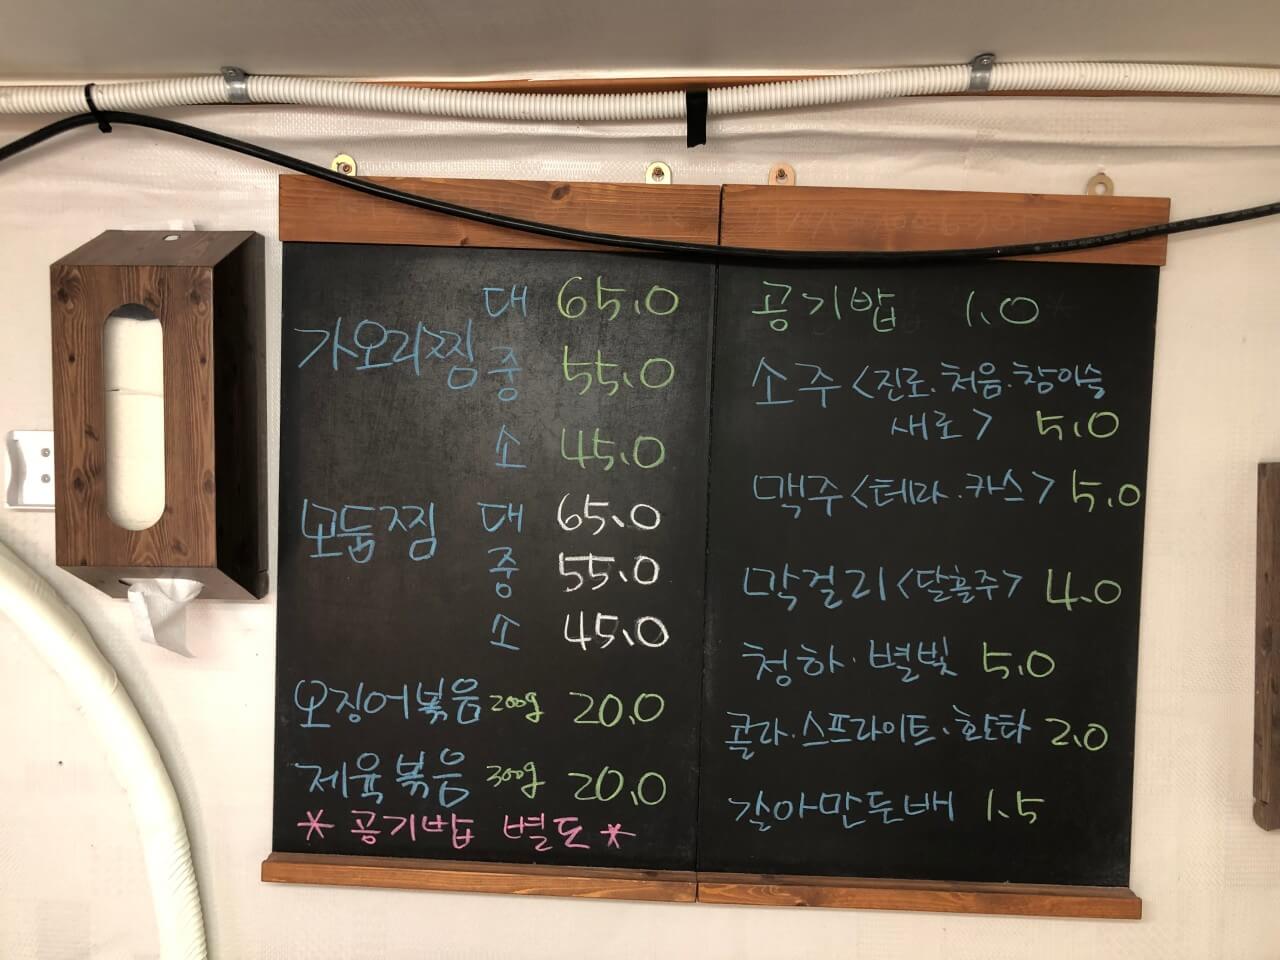 가오리찜 대 65.0
중 55.0
소 45.0
모둠찜 대 65.0
중 55.0
소 45.0
오징어볶음 200g 20.0
제육볶음 300g 20.0
* 공기밥 별도 *
공기밥 1.0
소주 <진로.처음.참이슬
새로> 5.0
맥주 <테라.카스> 5.0
막걸리 <달홀주> 4.0
청하.별빛 5.0
콜라.스프라이트.환타 2.0
갈아만든배 1.5